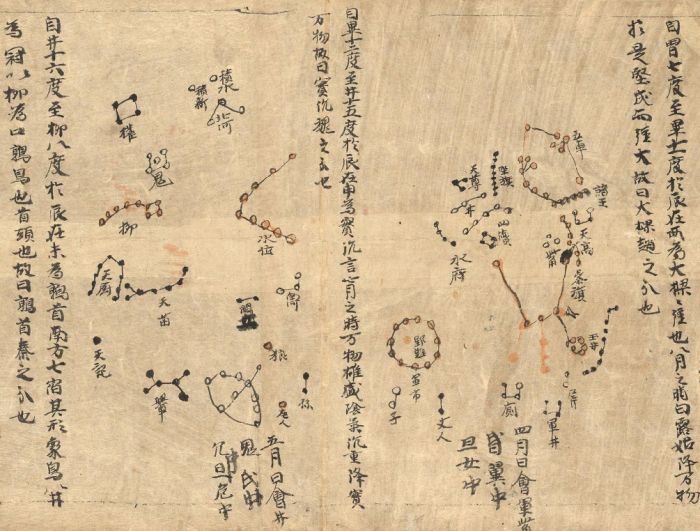 自胃七度至畢十一度於辰在酉為大樑樑強也八月之時白露始降万物
於是堅成而強大故曰大樑趙之分也
五車
諸王
天高
觜
參旗
玉井
屏
軍井
厠
坐旗
天尊
井
四瀆
水府
野鷄
軍市
丈人
子
四月日會畢觜
昏翼中
旦女中
自畢十二度至井十五度於辰在申為實沉言七月之時万物雄盛陰氣沉重降實
万物故曰實沉魏之分也
積水
積薪
北河
權
鬼
柳
水位
天苗
狼
孫
老人
天記
五月日會井
鬼氐中
旦危中
自井十六度至柳八度於辰在未為鶉首南方七宿其形象鳥以井
為冠以柳為口鶉鳥也首頭也故曰鶉首秦之分也